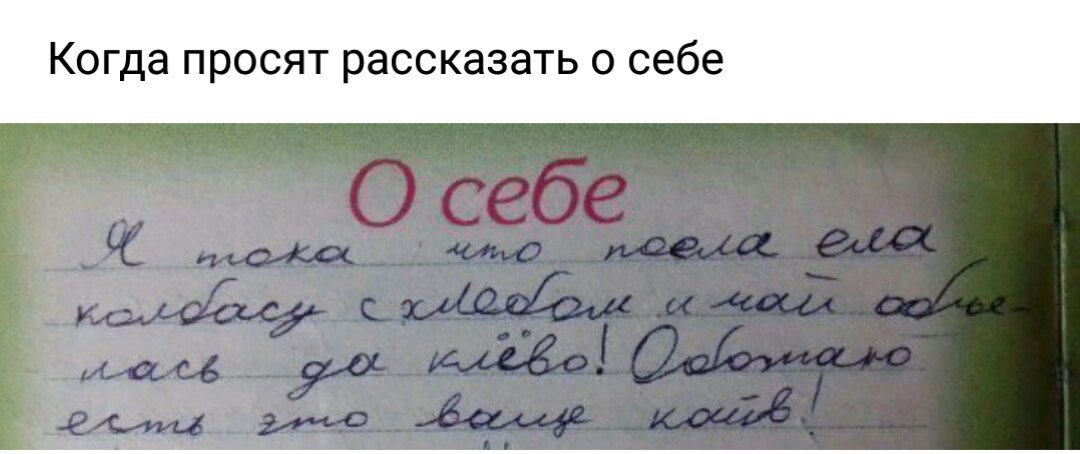 Когда просят рассказать о себе
О себе
Я тока что поела ела
колбасу с хлебом и чай обье-
лась да клёво! Обожаю
есть это ваще кайв!